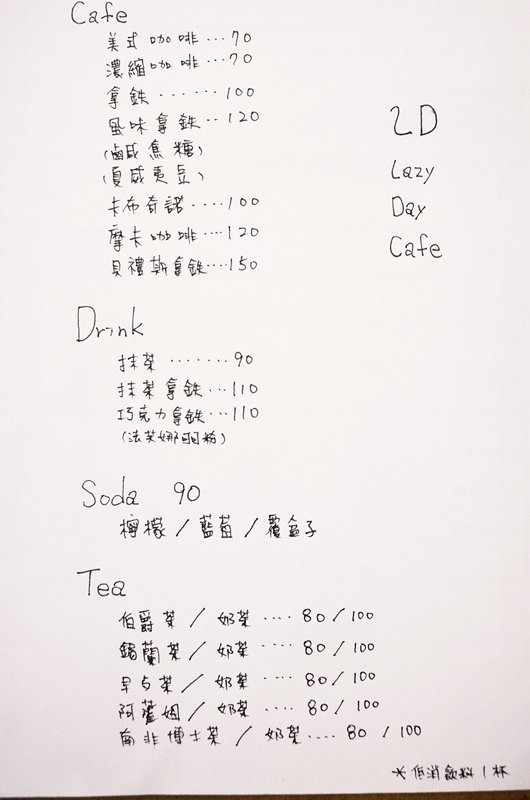 Cafe
美式咖啡...70
濃縮咖啡...70
拿鉄.......100
風味拿鉄..120
(鹹焦糖)
(夏威夷豆)
卡布奇諾....100
摩卡咖啡....120
貝禮斯拿鉄....150
LD
Lazy
Day
Cafe
Drink
抹茶.......90
抹茶拿鉄...110
巧克力拿鉄...110
(法芙娜可可粉)
Soda 90
檸檬/藍莓/覆盆子
Tea
伯爵茶/奶茶....80/100
錫蘭茶/奶茶....80/100
早安茶/奶茶....80/100
阿薩姆/奶茶....80/100
南非博士茶/奶茶....80/100
*低消飲料1杯